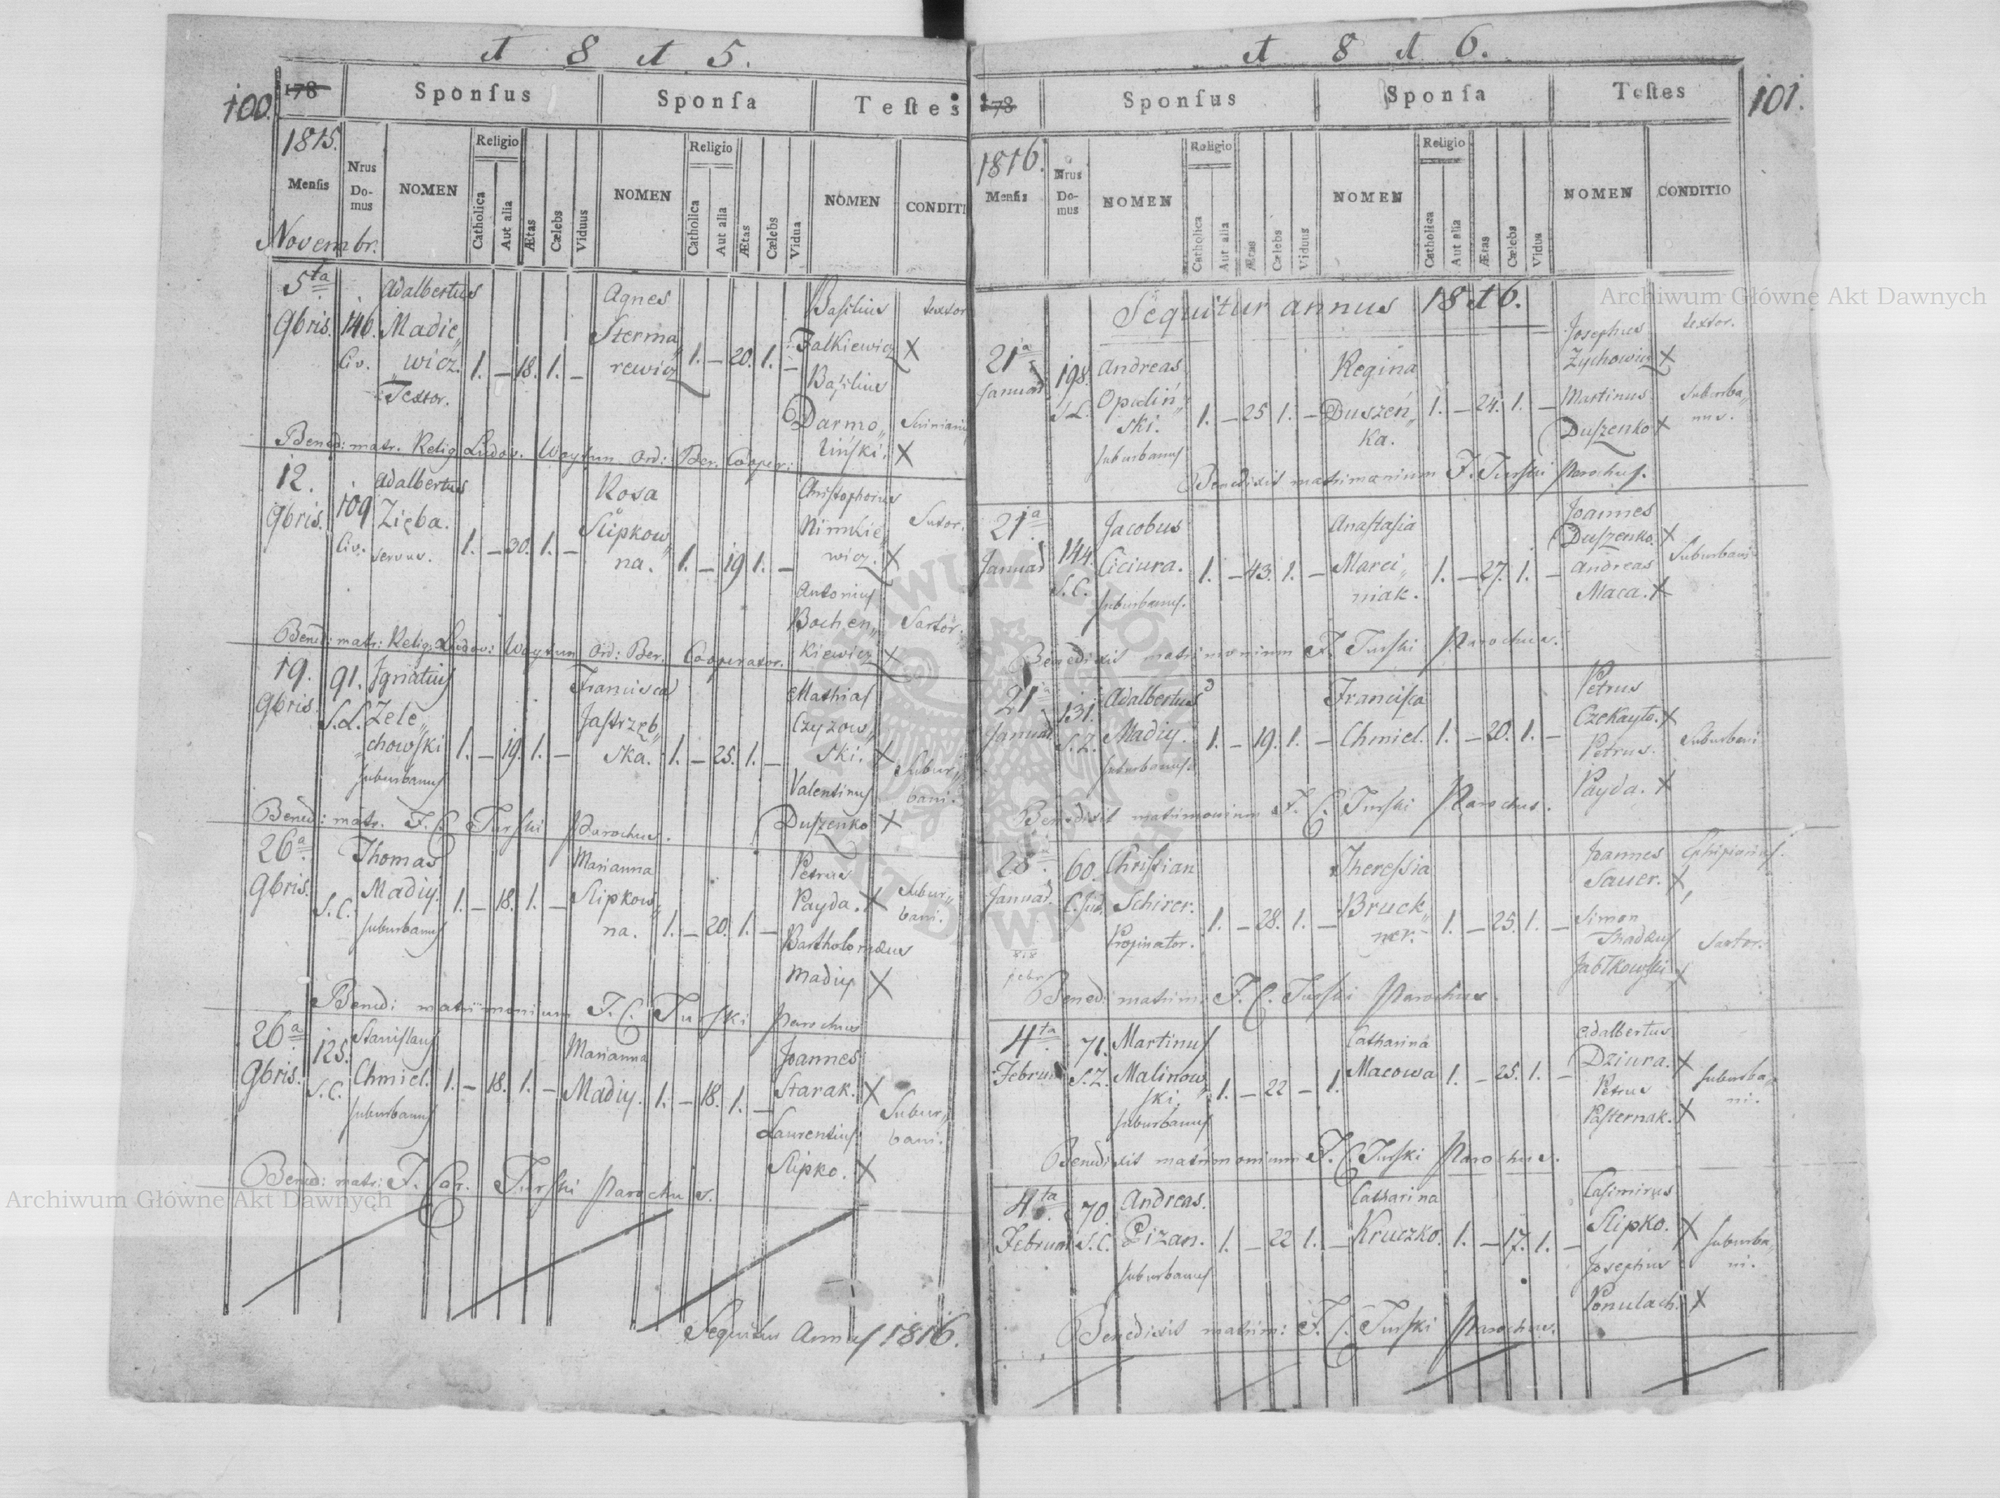 A 8 A 5.
100.
178
Sponſus
Sponſa
Teſtes
1815.
Menſis
Nrus Do-mus
NOMEN
Religio
Catholica
Aut alia
Ætas
Cælebs
Viduus
NOMEN
Religio
Catholica
Aut alia
Ætas
Cælebs
Vidua
NOMEN
CONDITI
Novembr.
5ta 9bris. 146. Civ.
Adalbertus
Madie„
„wicz.
Textor.
1. – 18. 1. –
Agnes
Sterma„
rewicz
1. – 20. 1. –
Basilius
Falkiewicz X
textor
Basilius
Darmo„
liński. X
Bened: matr. Relig. Ludov. Woytun Ord: Ber. Cooper:
12. 9bris. 109 Civ.
Adalbertus
Zięba.
servus.
1. – 30. 1. –
Rosa
Slipkow„
na.
1. – 19 1. –
Christophorus
Nimkie„
wicz. X
Sutor.
Antonius
Bochen„
kiewicz X
Sartor.
Bened: matr: Relig: Ludov: Woytun Ord: Ber. Cooperator.
19. 9bris 91. S.L.
Ignatius
Zele„
„chowski
suburbanus
1. – 19. 1. –
Francisca
Jastrzęb„
ska.
1. – 25. 1. –
Mathias
Czyzow„
ski. X
Valentinus
Duszenko X
Subur„
bani.
Bened: matr. F. C. Turski Parochus.
26a 9bris. S.C.
Thomas
Madiy.
suburbanus
1. – 18. 1. –
Marianna
Slipkow„
na.
1. – 20. 1. –
Petrus
Payda. X
Bartholomæus
Madiy X
Subur„
bani.
Bened: matrimonium F. C. Turski Parochus
26a 9bris. 125. S.C.
Stanislaus
Chmiel.
suburbanus
1. – 18. 1. –
Marianna
Madiy.
1. – 18. 1. –
Joannes
Starak. X
Laurentius
Slipko. X
Subur„
bani.
Bened: matr: F. Car. Turski Parochus.
Sequitur Annus 1816.
A 8 A 6.
101.
178
Sponſus
Sponſa
Teſtes
1816.
Menſis
Nrus Do-mus
NOMEN
Religio
Catholica
Aut alia
Ætas
Cælebs
Viduus
NOMEN
Religio
Catholica
Aut alia
Ætas
Cælebs
Vidua
NOMEN
CONDITIO
Sequitur annus 1816.
21a Januar 198. S.L.
Andreas
Opaliń„
ski.
suburbanus
1. – 25 1. –
Regina
Duszeń„
ka.
1. – 24. 1. –
Josephus
Zychowicz X
textor.
Martinus
Duszenko X
Suburba„
nus.
Benedixit matrimonium F. Turski Parochus.
21a Januar 144. S.C.
Jacobus
Ciciura.
suburbanus.
1. – 43. 1. –
Anastasia
Marci„
niak.
1. – 27. 1. –
Joannes
Duszenko. X
Andreas
Maca. X
Suburbani
Benedixit matrimonium F. Turski Parochus.
21 Januar 131. S.Z.
Adalbertus
Madiy.
suburbanus
1. – 19. 1. –
Francisca
Chmiel.
1. – 20. 1. –
Petrus
Czekayto. X
Petrus.
Payda. X
Suburbani
Benedixit matrimonium F. C. Turski Parochus.
28 Januar. 60.
Christian
Schirer.
Propinator.
1. – 28. 1. –
Theressia
Bruck„
ner.
1. – 25. 1. –
Joannes
Sauer. X
Ephipiarius.
Simon
Thadæus
Jabłkowski X
Sartor.
Bened: matrim: F. C. Turski Parochus
4ta Februar 71. S.Z.
Martinus
Malinow„
ski.
suburbanus
1. – 22 – 1.
Catharina
Macowa
1. – 25. 1. –
Adalbertus
Dziura. X
Petrus
Pasternak. X
suburba„
ni.
Benedixit matrimonium F. C. Turski Parochus.
4ta Februar 70. S.C.
Andreas.
Pizan.
suburbanus
1. – 22 1. –
Catharina
Kruczko.
1. – 17. 1. –
Casimirus
Slipko. X
Josephus
Ponulach. X
suburba„
ni.
Benedixit matrim: F. C. Turski Parochus.
Archiwum Główne Akt Dawnych
Archiwum Główne Akt Dawnych